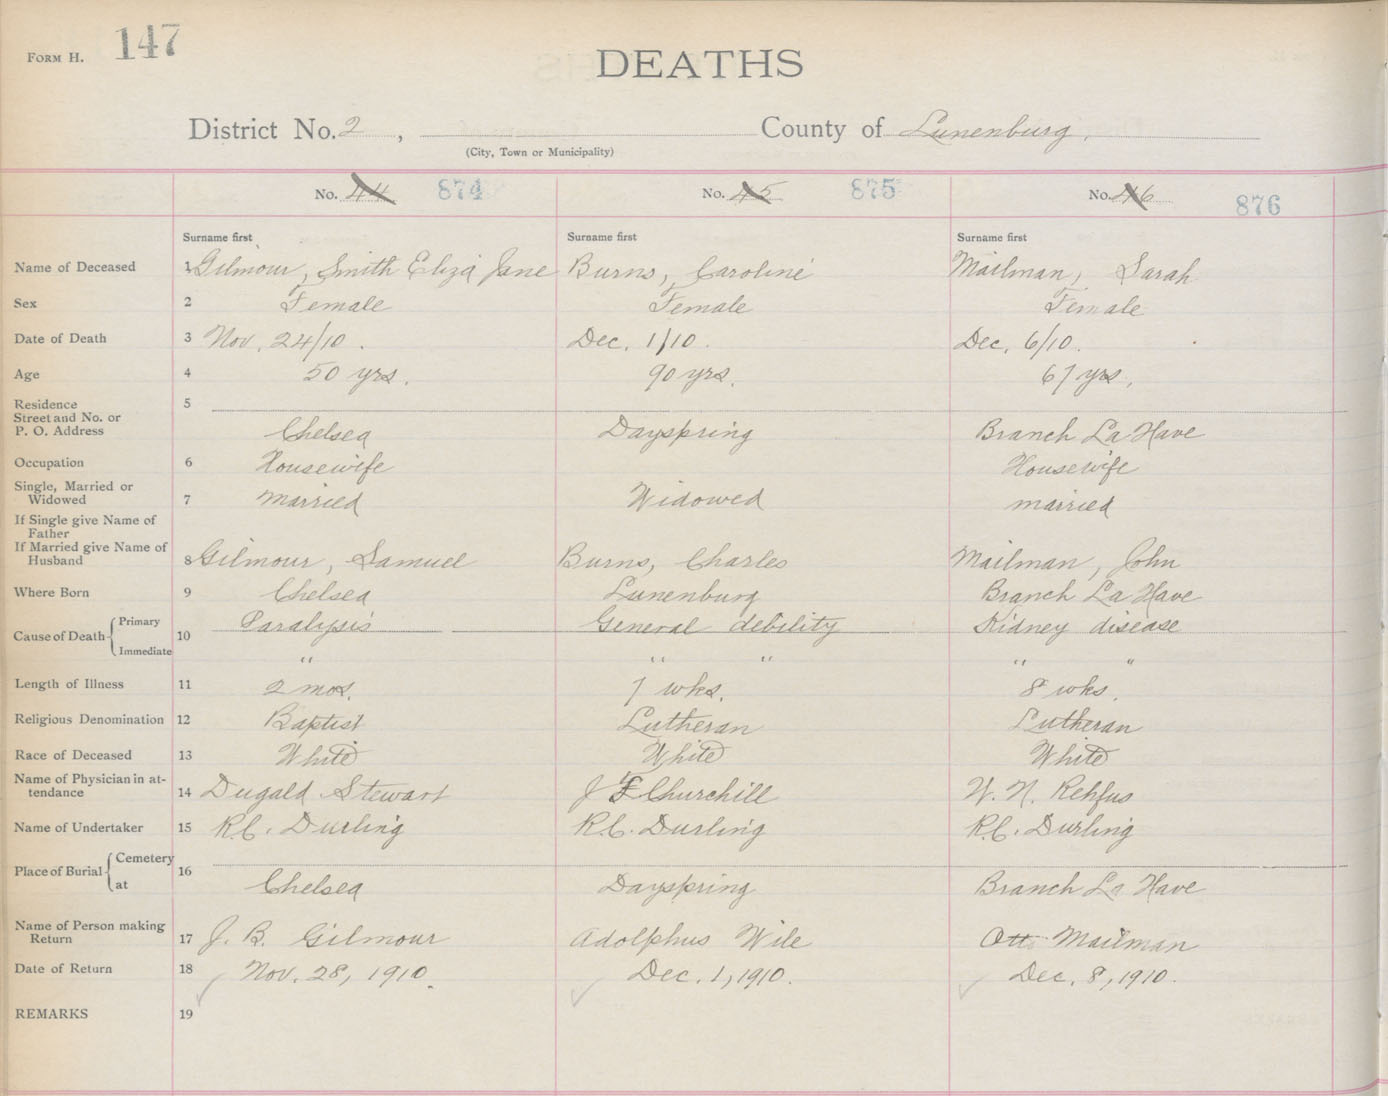 FORM H. 147
DEATHS
District No. 2 , County of Lunenburg.
(City, Town or Municipality)
No. 44 874 No. 45 875 No. 46 876
Surname first Surname first Surname first
Name of Deceased 1 Gilmour, Smith Eliza Jane Burns, Caroline Mailman, Sarah
Sex 2 Female Female Female
Date of Death 3 Nov. 24/10. Dec. 1/10. Dec. 6/10.
Age 4 50 yrs. 90 yrs. 67 yrs.
Residence 5
Street and No. or
P. O. Address Chelsea Dayspring Branch La Have
Occupation 6 Housewife Housewife
Single, Married or
Widowed 7 married Widowed married
If Single give Name of
Father
If Married give Name of
Husband 8 Gilmour, Samuel Burns, Charles Mailman, John
Where Born 9 Chelsea Lunenburg Branch La Have
Cause of Death Primary 10 Paralysis General debility Kidney disease
Immediate " " " " "
Length of Illness 11 2 mos. 7 wks. 8 wks.
Religious Denomination 12 Baptist Lutheran Lutheran
Race of Deceased 13 White White White
Name of Physician in at-
tendance 14 Dugald Stewart J F Churchill W. N. Rehfus
Name of Undertaker 15 R.C. Durling R.C. Durling R.C. Durling
Place of Burial Cemetery 16
at Chelsea Dayspring Branch La Have
Name of Person making
Return 17 J. B. Gilmour Adolphus Wile Otto Mailman
Date of Return 18 Nov. 28, 1910. Dec. 1, 1910. Dec. 8, 1910.
REMARKS 19